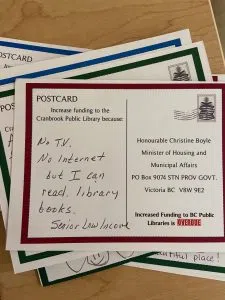 POSTCARD
Increase funding to the
Cranbrook Public Library because:
No TV.
No Internet
but I can
read library
books.
Senior Low Income
Honourable Christine Boyle
Minister of Housing and
Municipal Affairs
PO Box 9074 STN PROV GOVT.
Victoria BC V8W 9E2
Increased Funding to BC Public
Libraries is OVERDUE
beautiful place!